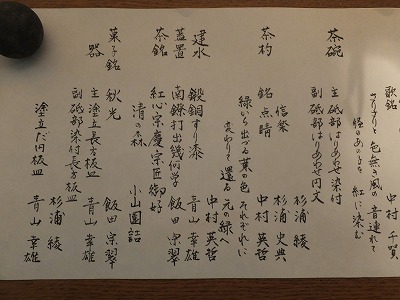 歌銘
さらさらと 色無き風の 音連れて
経のあの子を 紅に染む
中村 千賀
茶碗
主 砥部はりあわせ染付
杉浦 綾
副 砥部はりあわせ円文
杉浦 史典
茶杓
信樂
銘 点晴
中村 英哲
緑いら出づる葉の色 それぞれに
変わりて還る 元の緑へ
中村 英哲
建水
鍛銅すり漆
青山 幸雄
蓋置
南鐐打出幾何学
飯田 宗翠
茶銘
紅心宗慶宗匠御好
清の森
小山園詰
菓子銘
秋光
飯田 宗翠
器
主 塗立長方板皿
青山 幸雄
副 砥部染付長方板皿
杉浦 綾
塗立だ円板皿
青山 幸雄